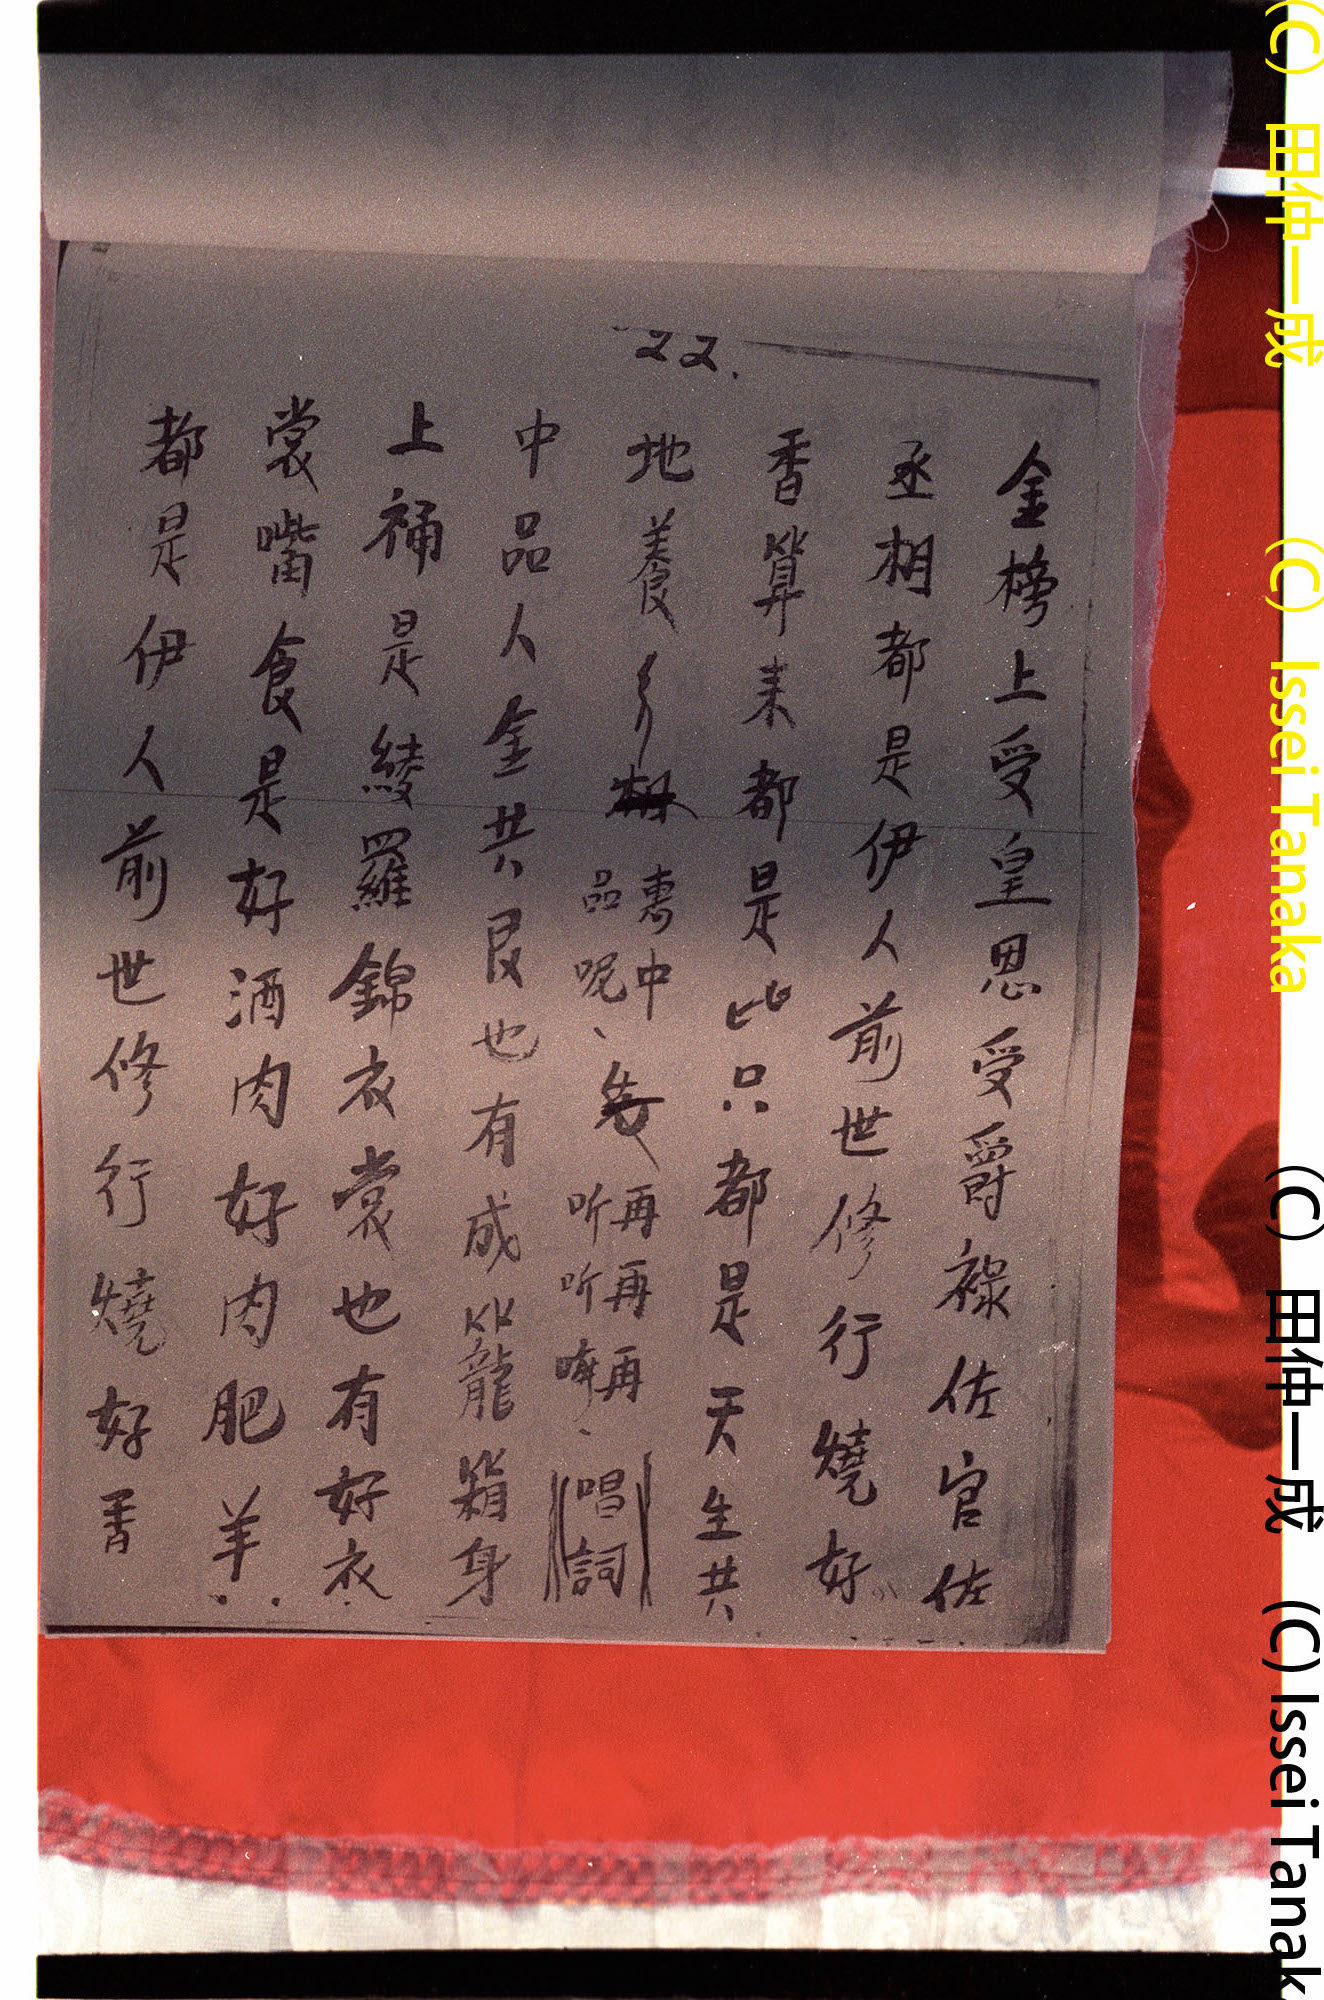 22.
金榜上受皇恩受爵祿佐官佐
丞相都是伊人前世修行燒好
香算來都是比只都是天生共
地養
惠中
品呢、
再再再
听听𠲿、
(唱詞)
中品人金共艮也有成籠箱身
上補是綾羅錦衣裳也有好衣
裳嘴食是好酒肉好肉肥羊
都是伊人前世修行燒好香
(C) 田仲一成 (C) Issei Tanaka
(C) 田仲一成 (C) Issei Tanak